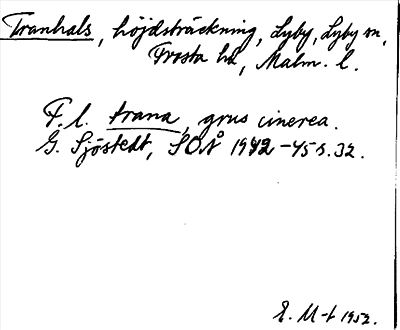 Tranhals, höjdsträckning, Lyby, Lyby sn,
Frosta hd, Malm. l.
F. l. trana, grus cinerea.
G. Sjöstedt, SOÅ 1942-45 s. 32.
E. M-t 1952.